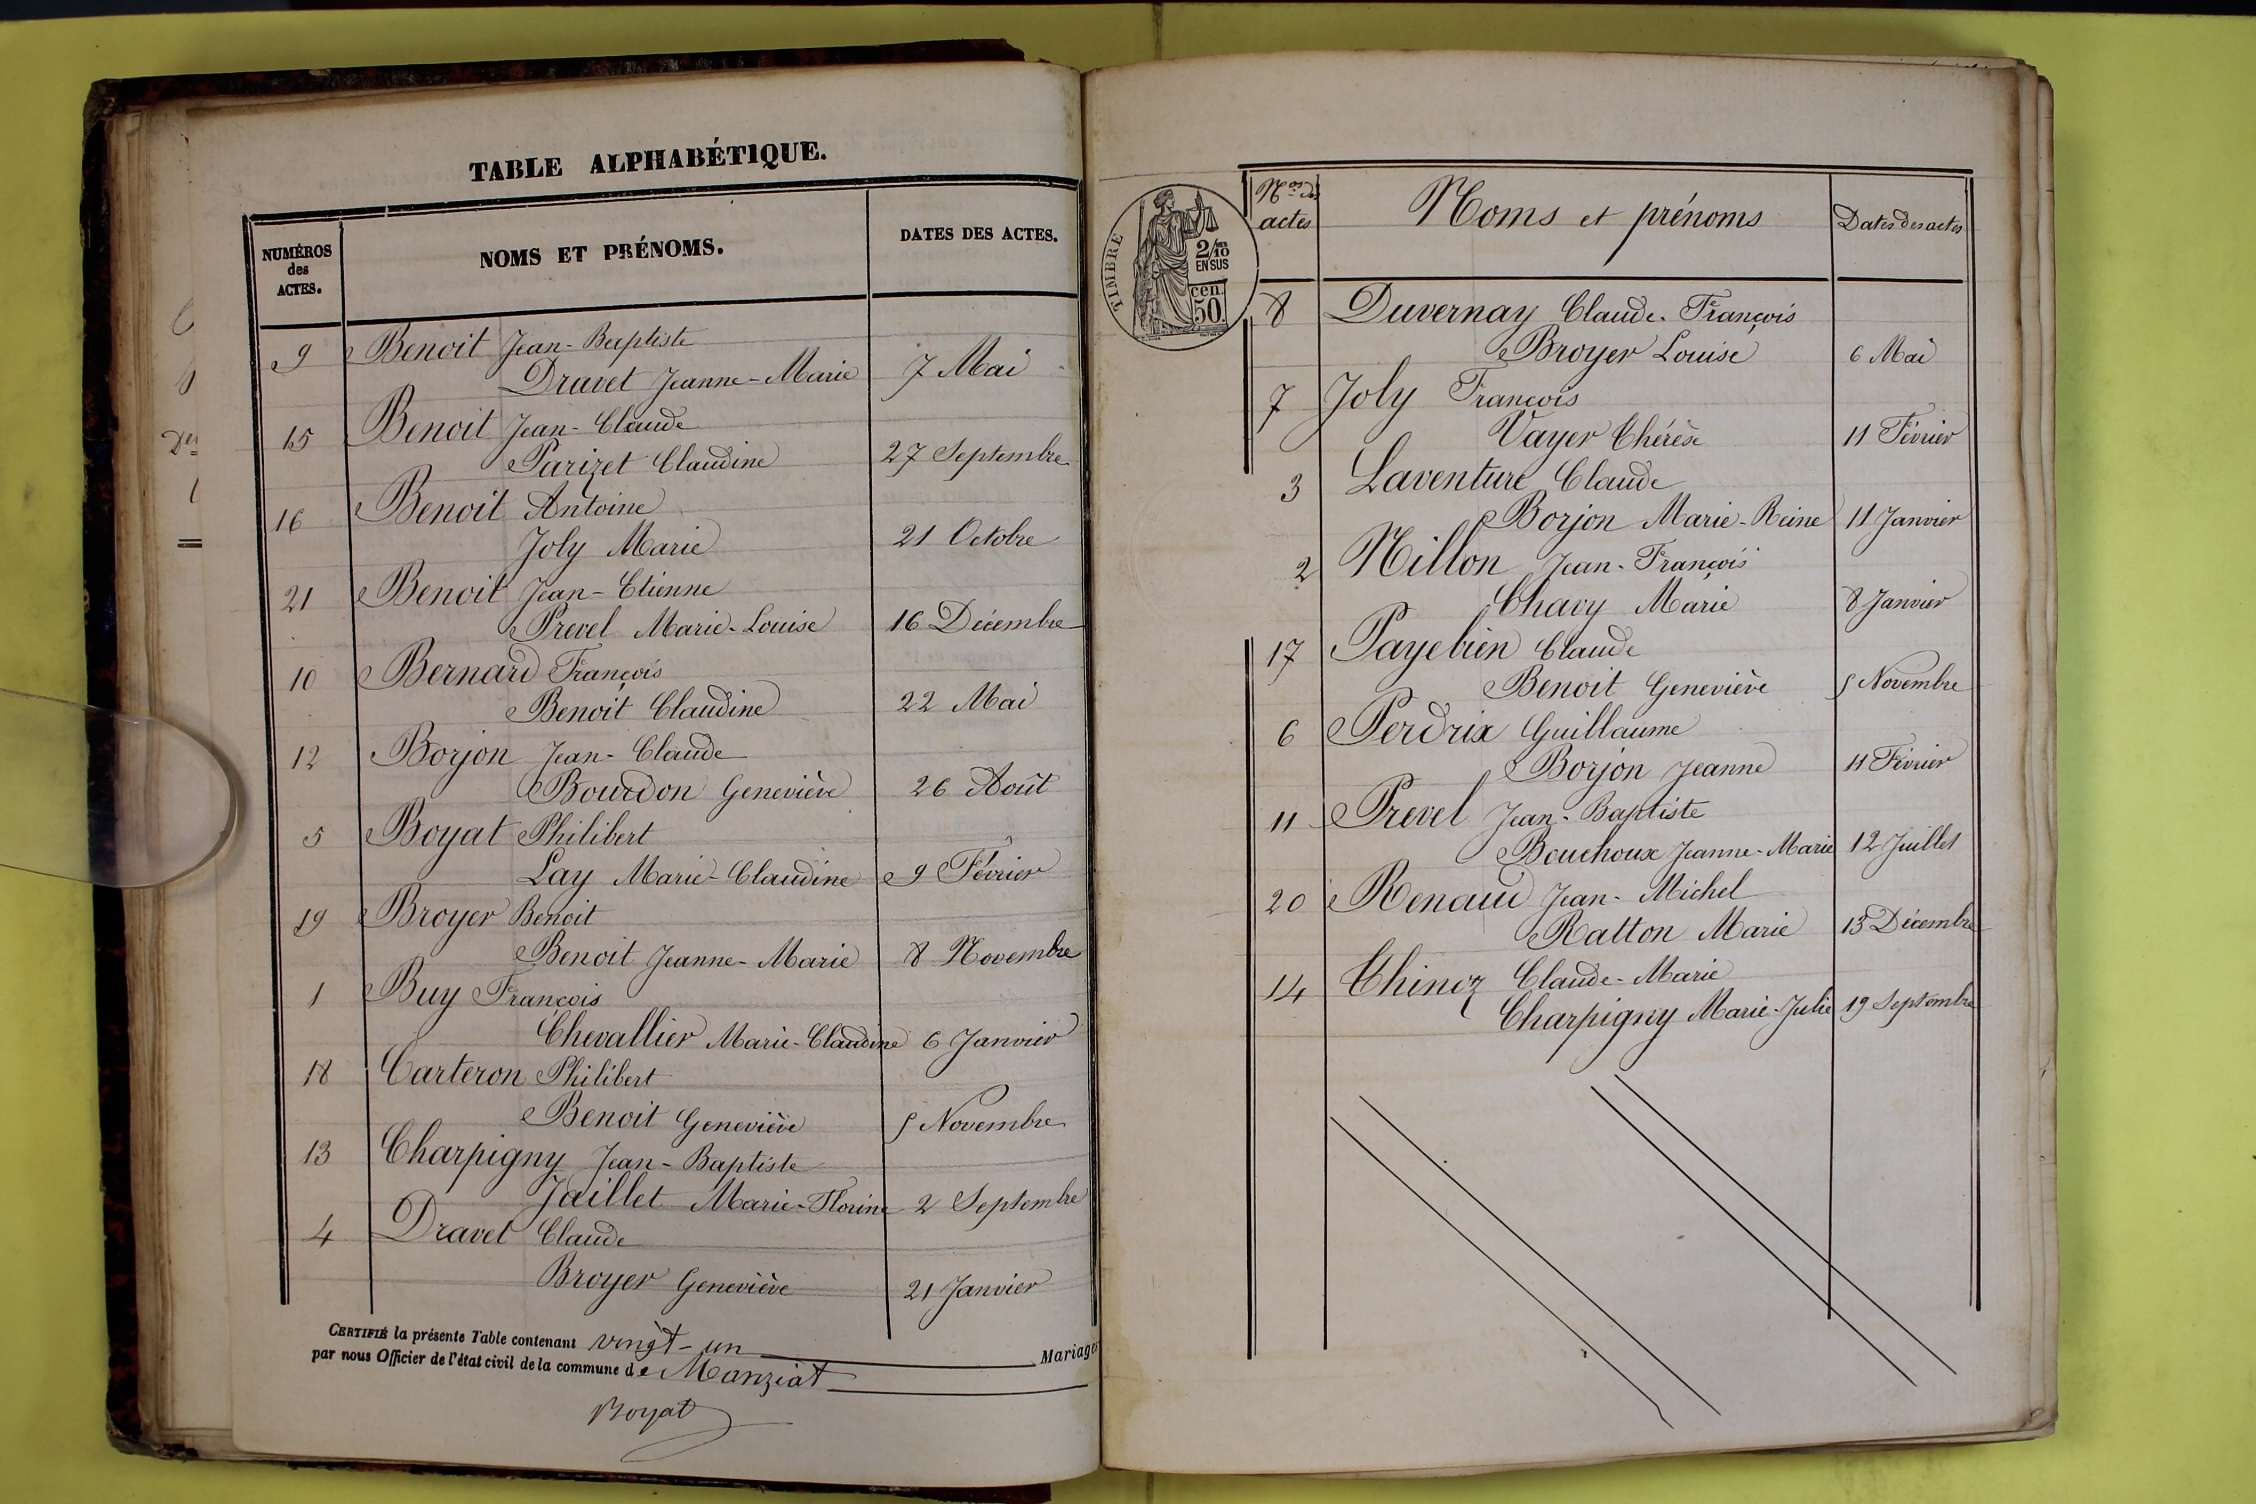 TABLE ALPHABÉTIQUE.
NUMÉROS
des
ACTES.
NOMS ET PRÉNOMS.
DATES DES ACTES.
9 Benoit Jean-Baptiste
Dravet Jeanne-Marie 7 Mai
15 Benoit Jean-Claude
Parizet Claudine 27 Septembre
16 Benoit Antoine
Joly Marie 21 Octobre
21 Benoit Jean-Etienne
Prevel Marie-Louise 16 Décembre
10 Bernard François
Benoit Claudine 22 Mai
12 Borjon Jean-Claude
Bourdon Geneviève 26 Août
5 Boyat Philibert
Lay Marie-Claudine 9 Février
19 Broyer Benoit
Benoit Jeanne-Marie 8 Novembre
1 Buy François
Chevallier Marie-Claudine 6 Janvier
18 Carteron Philibert
Benoit Geneviève 5 Novembre
13 Charpigny Jean-Baptiste
Jaillet Marie-Florine 2 Septembre
4 Dravet Claude
Broyer Geneviève 21 Janvier
CERTIFIÉ la présente Table contenant vingt-un Mariages
par nous Officier de l'état civil de la commune de Manziat
Boyat
TIMBRE
2/10
EN SUS
cen.
50.
Nos des
actes
Noms et prénoms
Dates des actes
8 Duvernay Claude-François
Broyer Louise 6 Mai
7 Joly François
Vayer Thérèse 11 Février
3 Laventure Claude
Borjon Marie-Reine 11 Janvier
2 Nillon Jean-François
Chavy Marie 8 Janvier
17 Payebien Claude
Benoit Geneviève 5 Novembre
6 Perdrix Guillaume
Borjon Jeanne 11 Février
11 Prevel Jean-Baptiste
Bouchoux Jeanne-Marie 12 Juillet
20 Renaud Jean-Michel
Ratton Marie 13 Décembre
14 Thinoz Claude-Marie
Charpigny Marie-Julie 19 Septembre